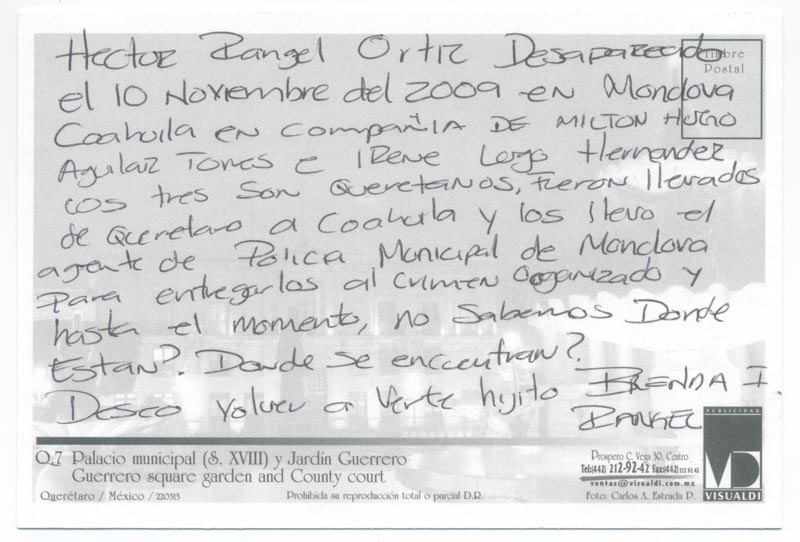 Timbre
Postal
Hector Rangel Ortiz Desaparecido
el 10 Noviembre del 2009 en Mondova
Coahuila en Compañia DE MILTON HUGO
Aguilar Torres e IRENE Lugo Hernandez
Los tres son Queretanos, Fueron llevados
de Queretaro a Coahuila y los llevo el
agente de Policia Municipal de Mondova
para entregarlos al crimen organizado y
hasta el momento, no sabemos Donde
Estan?. Donde se encuentran?
Deseo volver a verte hijito BRENDA I
RANGEL
Q.7 Palacio municipal (S. XVIII) y Jardín Guerrero
Guerrero square garden and County court
Querétaro / México / 220313
Prohibida su reproducción total o parcial D.R.
Prospero C. Vega 30, Centro
Tels:(442) 212-92-42 Fax:(442) 212 92 42
ventas@visualdi.com.mx
Foto: Carlos A. Estrada P.
PUBLICIDAD
VD
VISUALDI